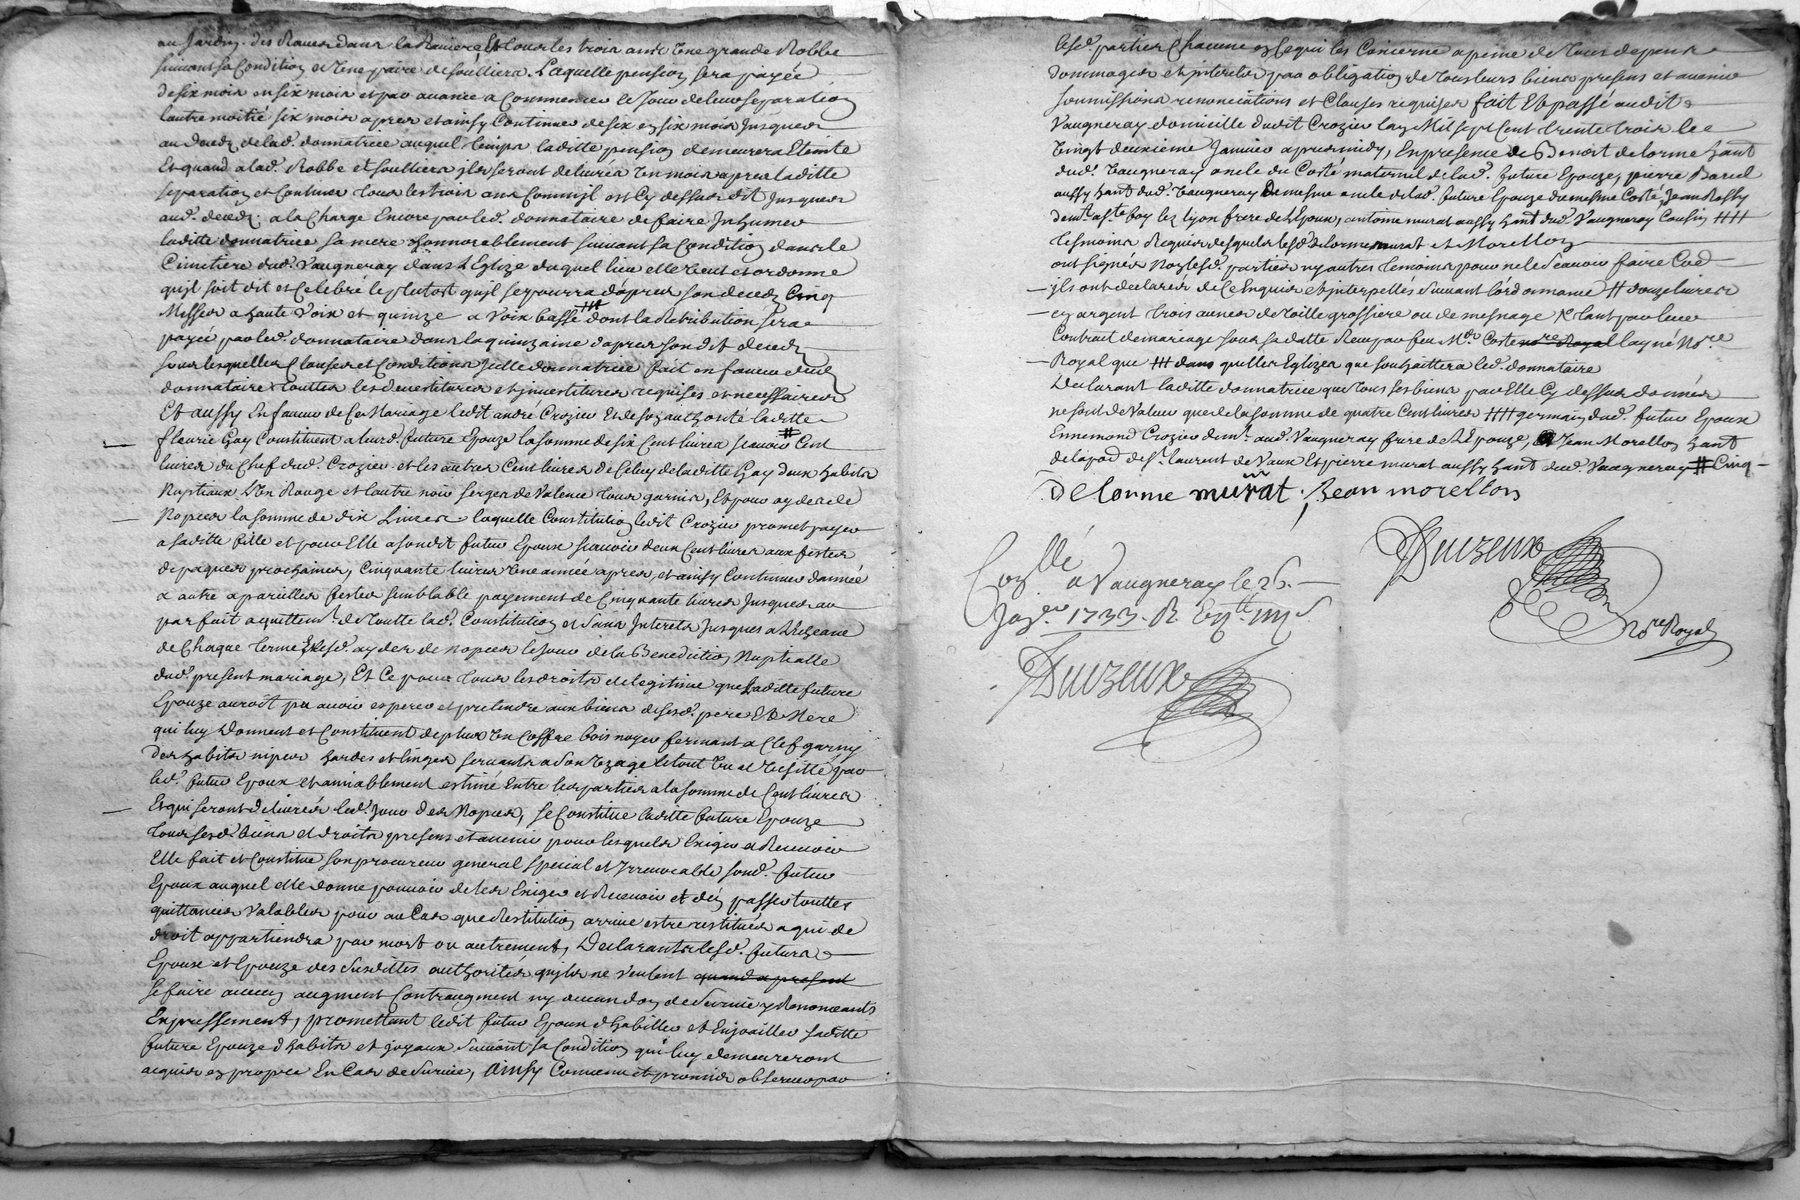 au Jardin des Raves dans la Raviere Et tous les trois ans Une grande Robbe
suivant sa Condition et Une paire de soulliers. Laquelle pension sera payée
de six mois en six mois et par avance a Commencer le Jour de leur separation
lautre moitié six mois apres et ainsy Continuer de six en six mois Jusques
au deceds de lad. donnatrice auquel temps laditte pension demeurera Eteinte
Et quand a lad. Robbe et soulliers ils seront delivrés Un mois apres laditte
separation et Continuer tous les trois ans Comme il est Cy dessus dit Jusques
aud. deceds. a la Charge Encore par led. donnataire de faire Inhumer
laditte donnatrice sa mere honnorablement suivant sa Condition dans le
Cimetiere dud. Vaugneray dans L'Eglize duquel lieu elle Veut et ordonne
quil soit dit et Celebré le plutost quil se pourra dapres son deceds Cinq
Messes a haute Voix et quinze a Voix basse ### dont la Retribution sera
payée par led. donnataire dans la quinzaine dapres son dit deceds
sous lesquelles Clauses et Conditions Icelle donnatrice fait en faveur dud.
donnataire touttes les devestitures et investitures requises et necessaires
Et aussy En faveur de Ce Mariage ledit andré Crozier Et de son authorité laditte
fleurie Gay Constituent a leurd. future Epouze la somme de six Cent livres scavoir # Cent
livres du Chef dud. Crozier et les autres Cent livres de Celuy de laditte Gay deux habits
Nuptiaux L'Un Rouge et lautre noir serges de Valence tous garnis, Et pour ayde de
Nopces la somme de dix Livres laquelle Constitution ledit Crozier promet payer
a laditte fille et pour Elle a son dit futur Epoux scavoir deux Cent livres aux festes
de paques prochaines, Cinquante livres Une année apres, et ainsy Continuer dannée
a autre a pareilles festes semblable payement de Cinquante livres Jusques au
parfait aquittemt. de toutte lad. Constitution et sans Interets Jusques a L'Echeance
de Chaque terme Lesd. aydes de nopces le jour de la Benediction Nuptialle
dud. present mariage, Et Ce pour tous les droits de legitime que laditte future
Epouze auroit pu avoir esperer et pretendre aux biens desesd. pere Et Mere
qui luy Donnent et Constituent de plus Un Coffre bois noyer fermant a Clef garny
des habits nipes hardes et linges servants a Son Uzage le tout Vu et Visitté par
led. futur Epoux et amiablement estimé Entre les parties a la somme de Cent livres
Et qui seront delivrés led. Jour des Nopces, se Constitue laditte future Epouze
tous sesd. biens et droits presens et avenir pour lesquels Exiger et Recevoir
Elle fait et Constitue son procureur general special et Irrevocable sond. futur
Epoux auquel elle donne pouvoir de les Exiger et Recevoir et den passer touttes
quittances Valables pour au Cas que Restitution arrive estre restitués a qui de
droit appartiendra par mort ou autrement, Declarants lesd. futurs
Epoux et Epouze des susdittes authorités quils ne Veulent quand a present
se faire aucun augment Contraugment ny aucun don de Survie y Renonceants
Expressement, promettant ledit futur Epoux d'habiller et Enjoailler saditte
future Epouze d'habits et joyaux Suivant sa Condition qui luy demeureront
acquis en propre En Cas de Survie, Ainsy Convenu et promis observer par
lesd. parties Chacune en Ce qui les Concerne a peine de tous depens
dommages et interets par obligation de tous leurs biens presens et avenir
soumissions renonciations et Clauses requises fait Et passé audit
Vaugneray domicille dudit Crozier lan Mil sept Cent trente trois le
Vingt deuxieme Janvier apres midy, En presence de Benoit delorme hant
dud. Vaugneray oncle du Costé maternel de lad. future Epouze, pierre Barel
aussy hant dud. Vaugneray De mesme oncle de lad. future Epouze du mesme Costé, Jean Rossy
demt. a Ste foy lez Lyon frere de l'Epoux, antoine murat aussy hant dud. Vaugneray Cousin ####
Temoins Requis desquels lesd. delorme murat et Morellon
ont signés Non lesd. parties ny autres temoins pour ne le Scavoir faire Co'e
ils ont declarés de Ce Enquis et interpellés Suivant L'ordonnance # douze livres
en argent trois aunes de toille grossiere ou de mesnage # tant par leur
Contrait de mariage sous sa datte Receu par feu Me. Coste nore Royal layné Nre
Royal que ### dans quelles Eglizes que souhaittera led. donnataire
Declarant laditte donnatrice que tous ses biens par Elle Cy dessus donnés
ne sont de Valeur que de la somme de quatre Cent livres #### germain dud. futur Epoux
Ennemond Crozier demt. aud. Vaugneray frere de L'Epouze, et Jean Morellon hant
de la par. de St. laurent de Vaux Et pierre murat aussy hant dud. Vaugneray # Cinq
Delorme murat Jean morellon
Conllé
a Vaugneray le 26.
Janer 1733. R.
Duizeux
Nore Royal
Duizeux